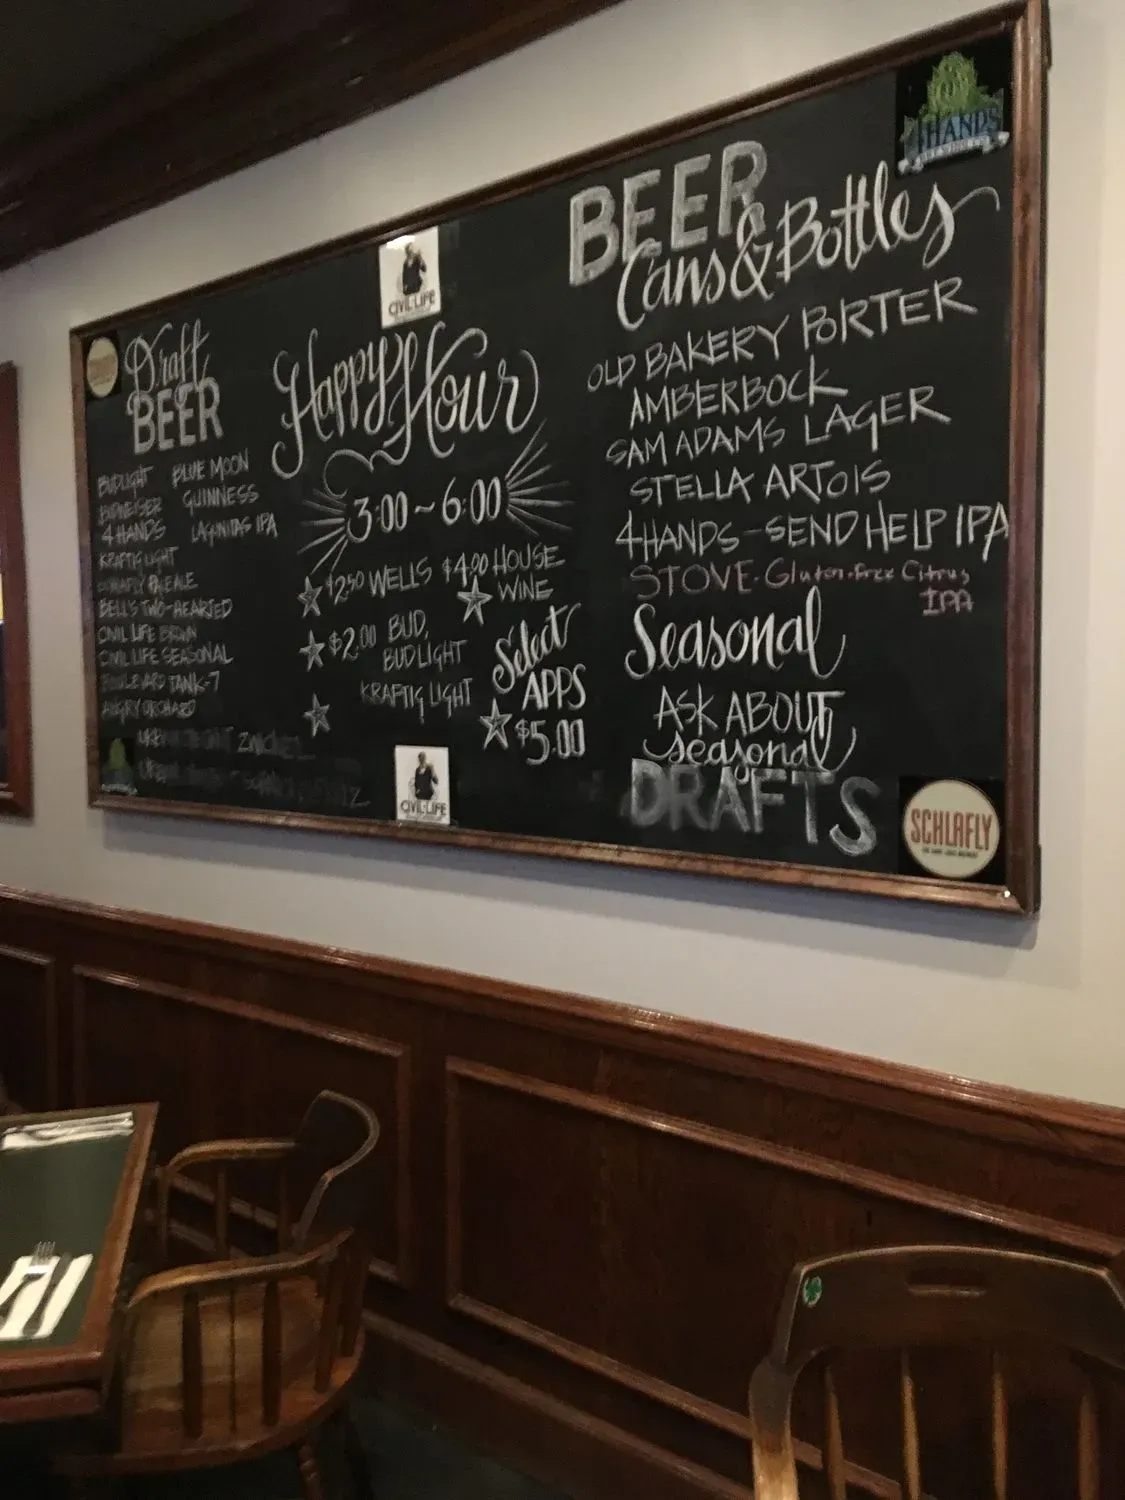 Draft
BEER
BUDLIGHT
BUDWEISER
4 HANDS
KRAFTIG LIGHT
SCHLAFLY PALE ALE
BELL'S TWO-HEARTED
CIVIL LIFE BROWN
CIVIL LIFE SEASONAL
BOULEVARD TANK-7
ANGRY ORCHARD
BLUE MOON
GUINNESS
LAGUNITAS IPA
URBAN ZWICKEL
URBAN
CIVIL LIFE
Happy Hour
3:00 ~ 6:00
$2.50 WELLS
$2.00 BUD,
BUDLIGHT
KRAFTIG LIGHT
$4.00 HOUSE
WINE
Select
APPS
$5.00
CIVIL LIFE
4HANDS
BREWING CO.
BEER
Cans & Bottles
OLD BAKERY PORTER
AMBERBOCK
SAM ADAMS LAGER
STELLA ARTOIS
4HANDS - SEND HELP IPA
STOVE. Gluten-free Citrus
IPA
Seasonal
ASK ABOUT
seasonal
DRAFTS
SCHLAFLY